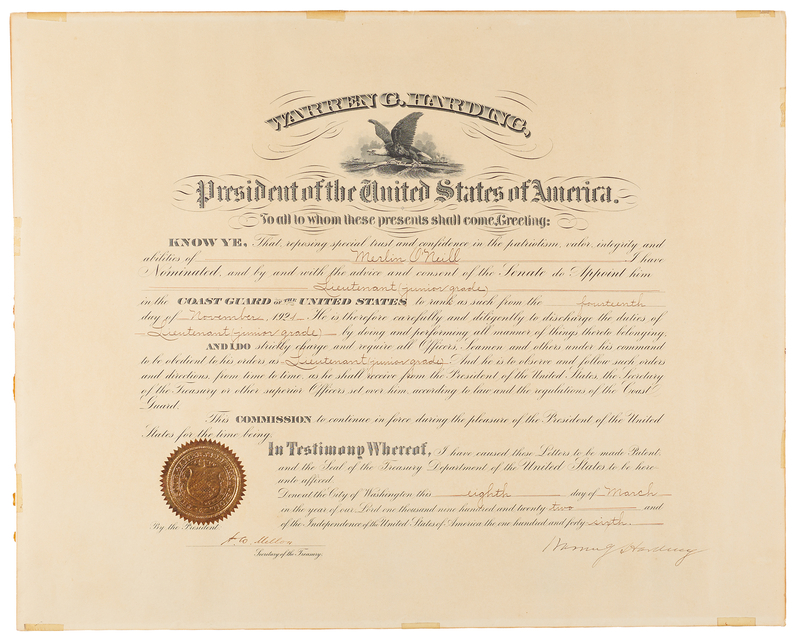 WARREN G. HARDING,
President of the United States of America.
To all to whom these presents shall come, Greeting:
KNOW YE, That, reposing special trust and confidence in the patriotism, valor, integrity and
abilities of Merlin O'Neill I have
Nominated, and by and with the advice and consent of the Senate do Appoint him
Lieutenant (junior grade)
in the COAST GUARD OF THE UNITED STATES to rank as such from the fourteenth
day of November, 1921. He is therefore carefully and diligently to discharge the duties of
Lieutenant (junior grade) by doing and performing all manner of things thereto belonging.
AND I DO strictly charge and require all Officers, Seamen and others under his command
to be obedient to his orders as Lieutenant (junior grade). And he is to observe and follow such orders
and directions, from time to time, as he shall receive from the President of the United States, the Secretary
of the Treasury or other superior Officers set over him, according to law and the regulations of the Coast
Guard.
This COMMISSION to continue in force during the pleasure of the President of the United
States for the time being.
In Testimony Whereof, I have caused these Letters to be made Patent,
and the Seal of the Treasury Department of the United States to be here-
unto affixed.
Done at the City of Washington this eighth day of March
in the year of our Lord one thousand nine hundred and twenty two and
of the Independence of the United States of America the one hundred and forty sixth.
By the President:
A W Mellon
Secretary of the Treasury.
Warren G Harding